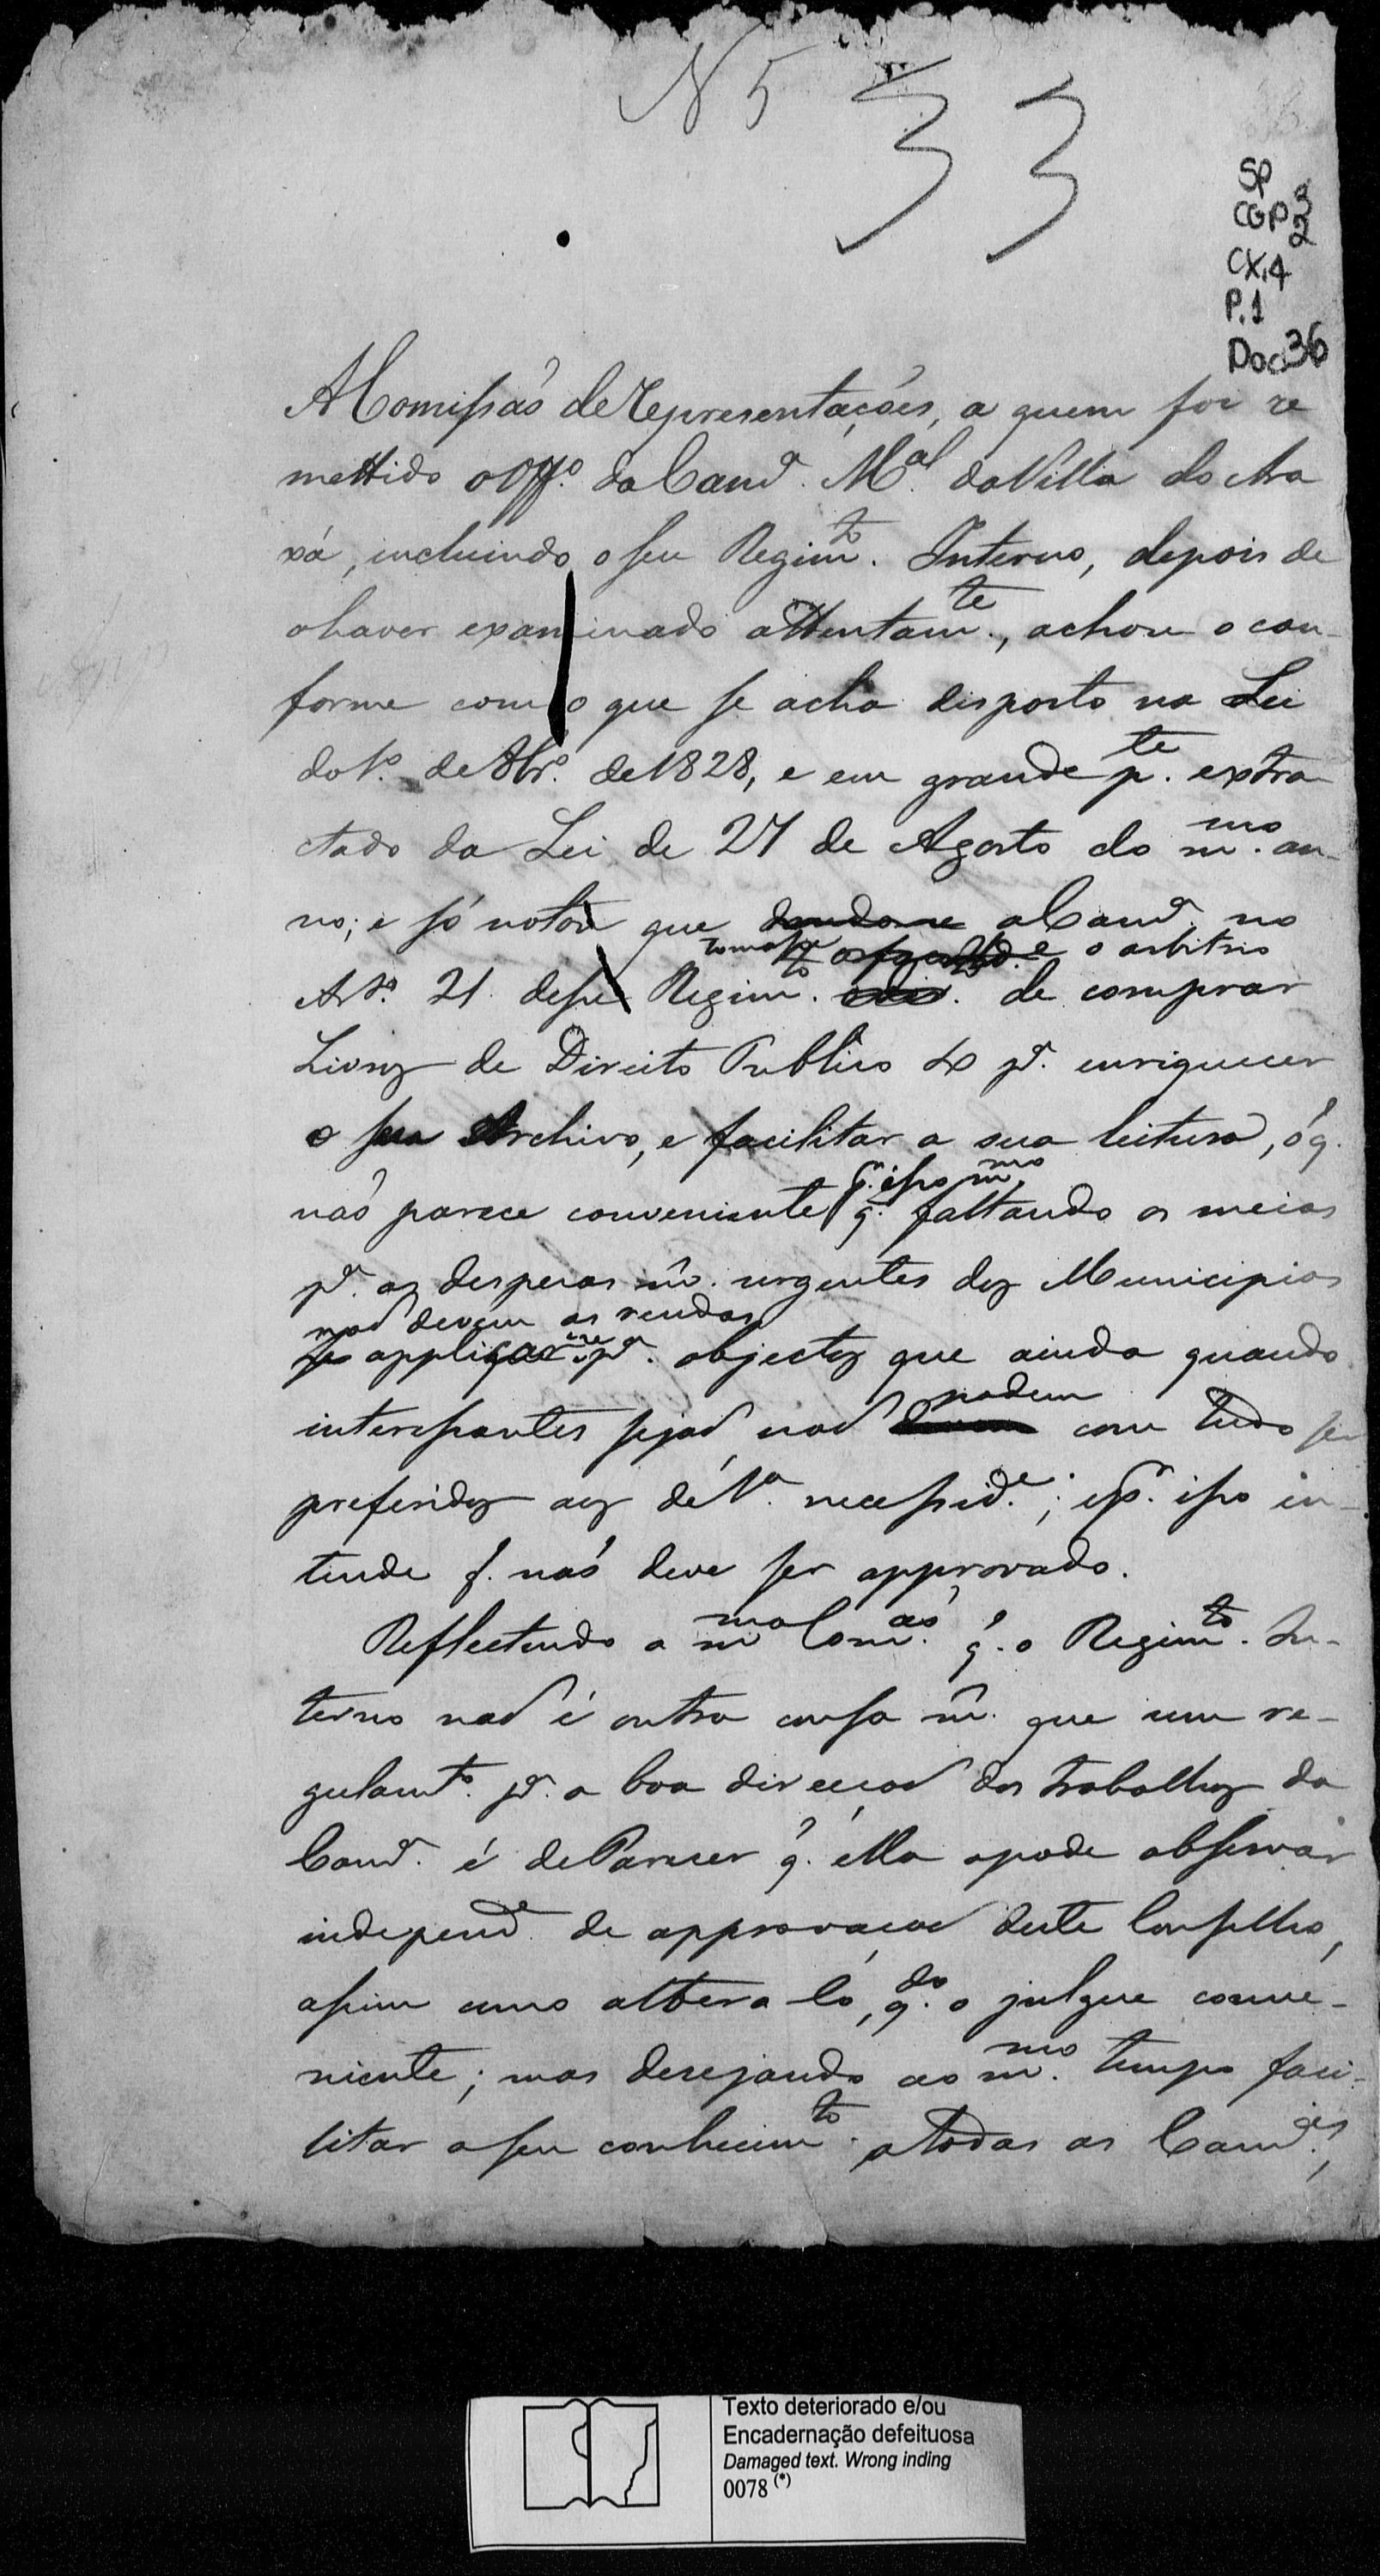 N 5 33
SP
CGP 3
2
CX.4
P.1
Doc 36
A Comissaõ de representaçoẽs, a quem foi re
mettido o Off.º da Camr.ª M.al da Villa do Ara
xá, incluindo o seu Regim.to Interno, depois de
o haver examinado attentam.te, achou o con-
forme com o que se acha disposto na Lei
do 1.º de 8br.º de 1828, e em grande p.te extra
ctado da Lei de 27 de Agosto do m.mo an-
no; e só nota que a Camr.ª no
tomasse e o arbitrio
Art.º 21 desse Regim.to de comprar
Livros de Direito Publico & p.ª enriquecer
o seu Archivo, e facilitar a sua leitura, o q.
naõ parece conveniente q. faltando os meios
p.r isso m.mo
p.ª as despezas m. urgentes dos Municipios
naõ devem as rendas
se applicar p.ª objectos que ainda quando
podem
interessantes sejaõ, naõ com tudo ser
preferidos aos de 1.ª necessid.e; e p.r isso in-
tende q. naõ deve ser approvado.
Reflectindo a m.ma Com.aõ q. o Regim.to In-
terno naõ é outra cousa m. que um re-
gulam.to p.ª a boa direcçaõ dos trabalhos da
Camr.ª é de Parecer q. ella o pode observar
independ.e de approvaçaõ deste Conselho,
assim como altera lo, q.do o julgue conve-
niente; mas desejando ao m.mo tempo faci-
litar o seu conhecim.to a todas as Camr.es,
Texto deteriorado e/ou
Encadernação defeituosa
Damaged text. Wrong inding
0078 (*)